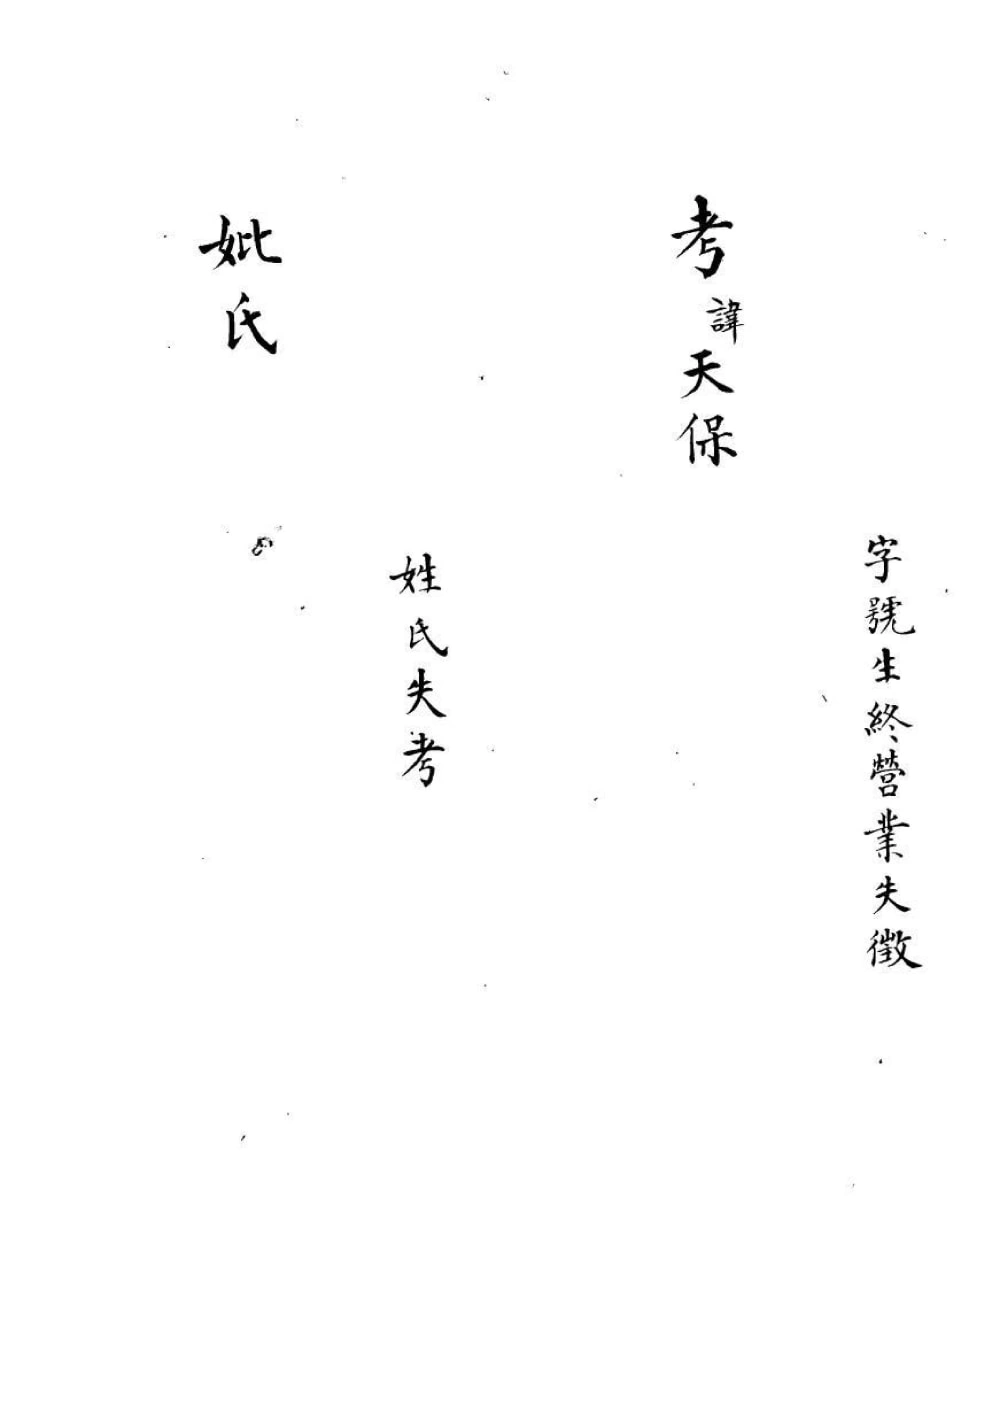 字號生終營業失徵
考諱天保
姓氏失考
妣氏